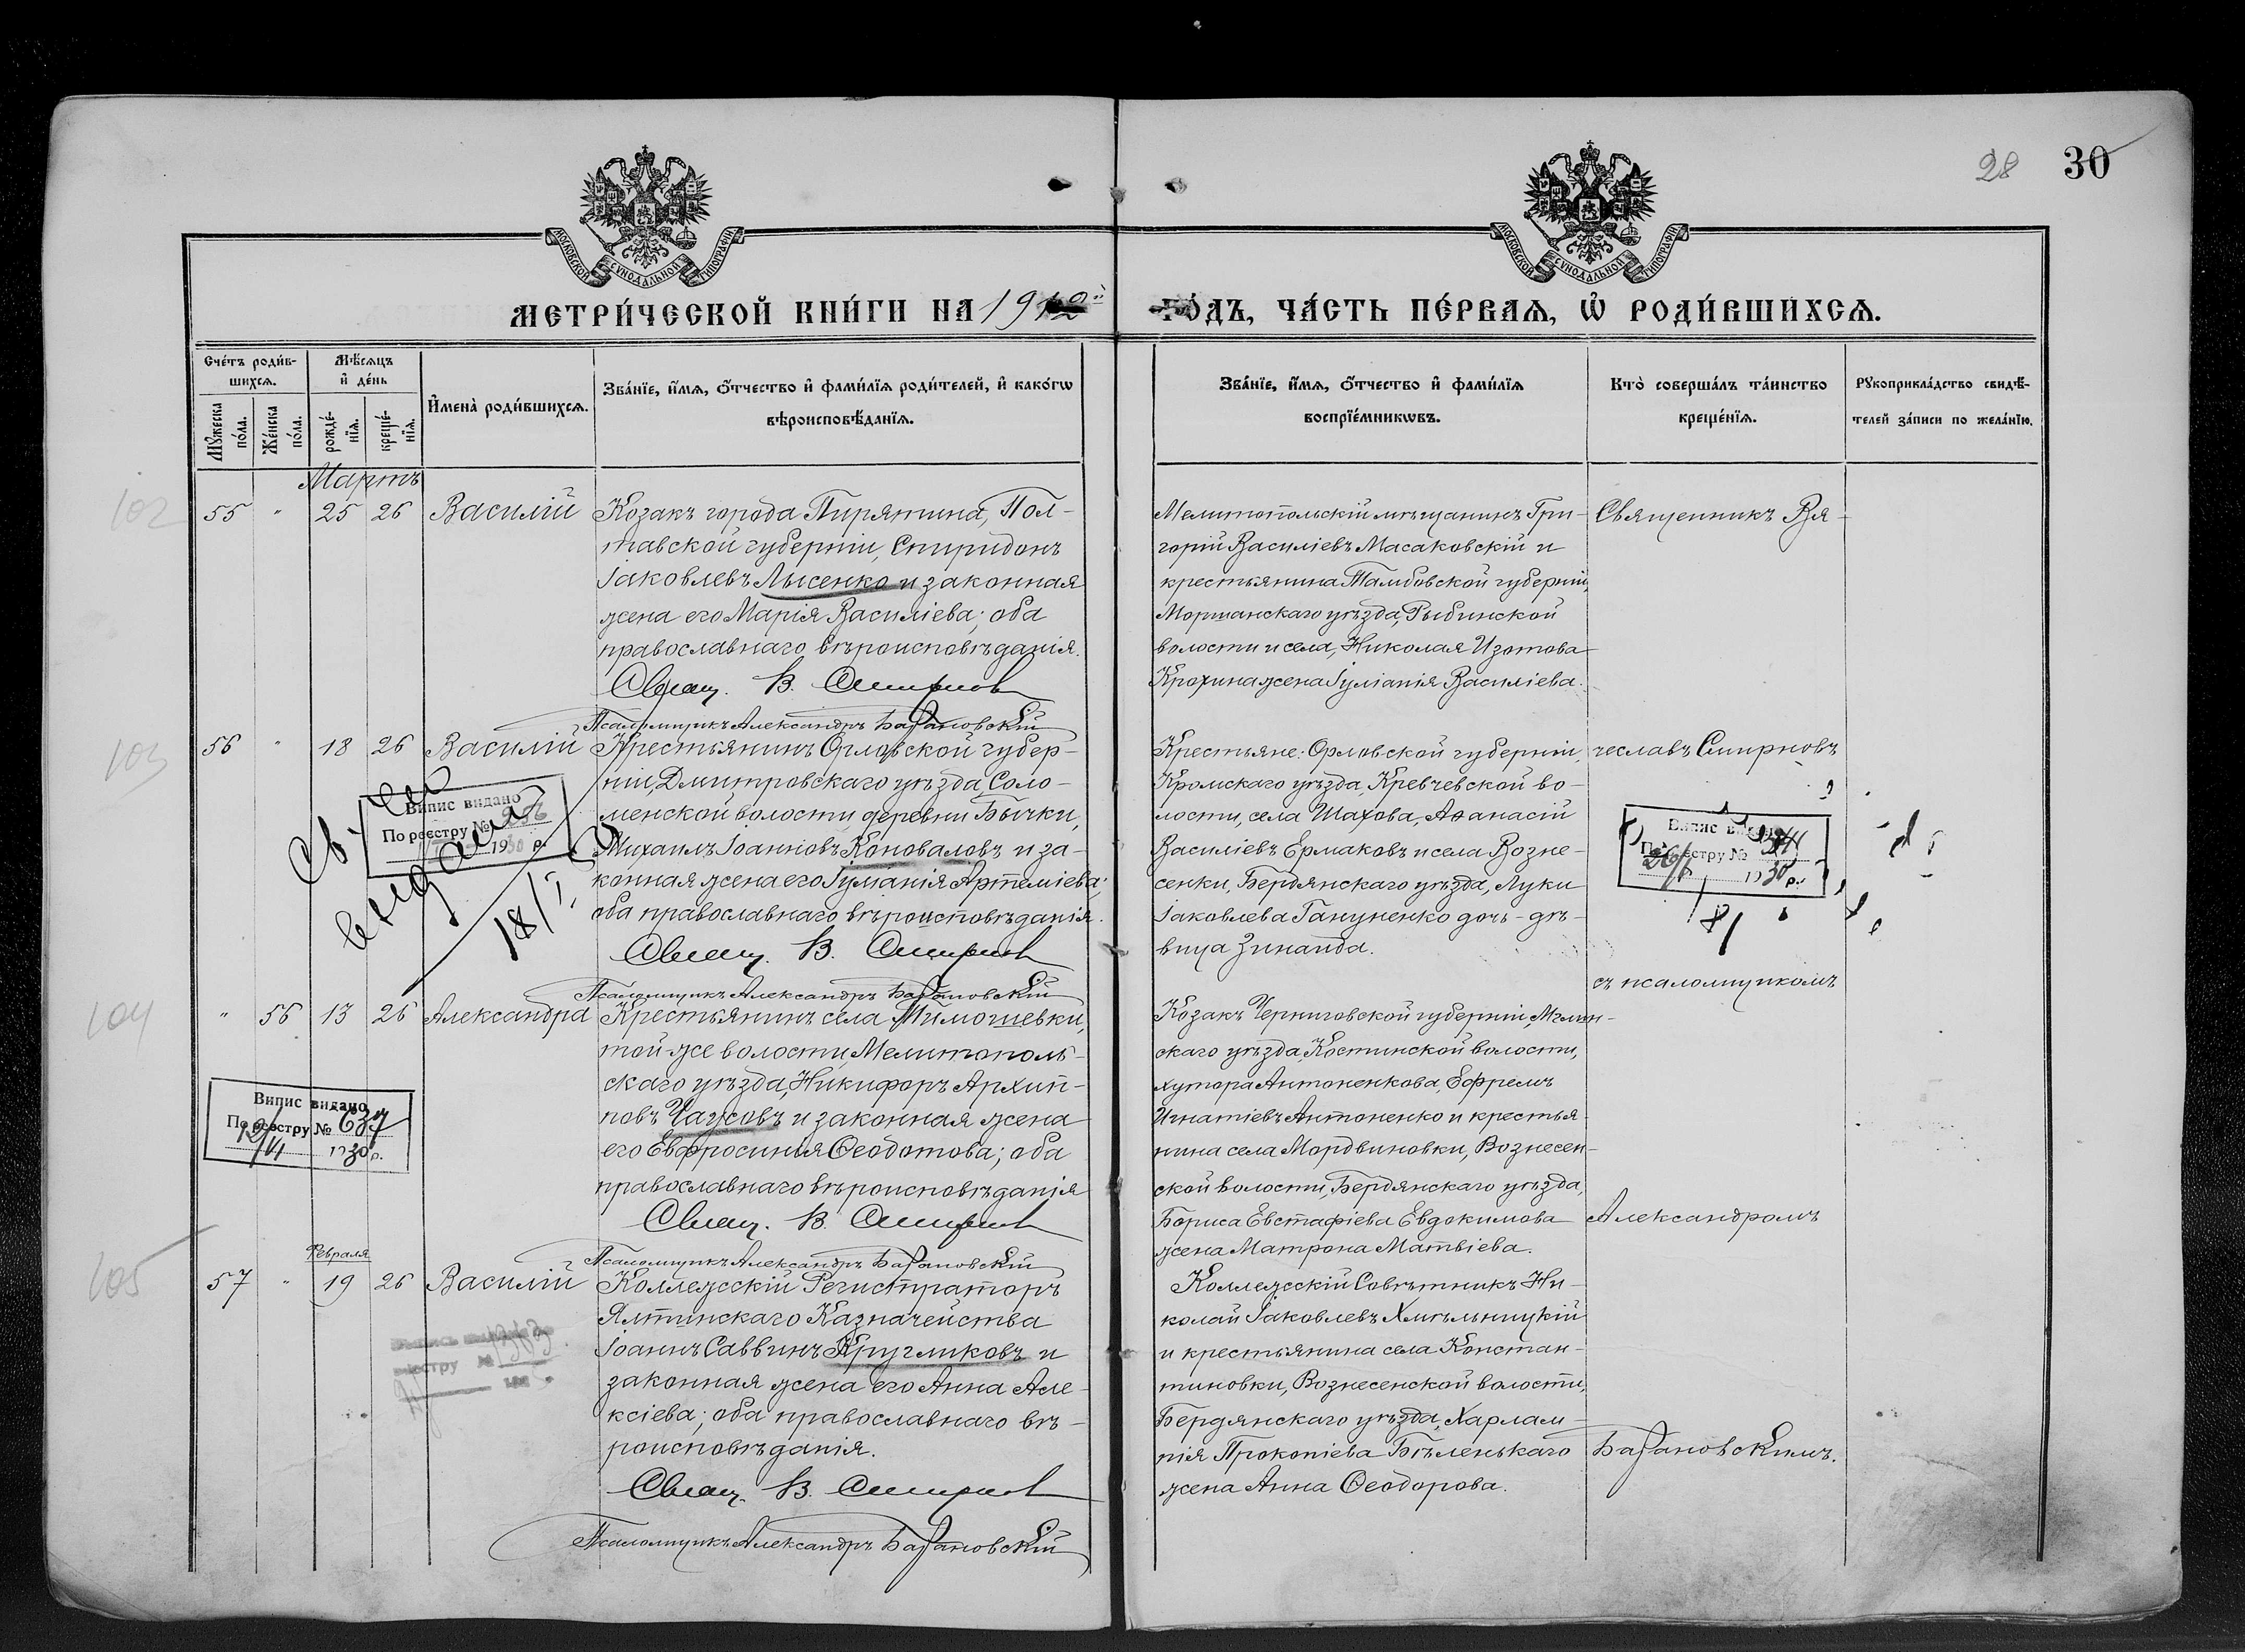 28 30
МОСКОВСКОЙ СѴНОДАЛЬНОЙ ТИПОГРАФІИ
МОСКОВСКОЙ СѴНОДАЛЬНОЙ ТИПОГРАФІИ
МЕТРИ́ЧЕСКОЙ КНИ́ГИ НА 1912й
ГО́ДЪ, ЧА́СТЬ ПЕ́РВАѦ, Ѡ҆ РОДИ́ВШИХСѦ.
Сче́тъ роди́в-
шихсѧ.
Мꙋ́жеска по́ла.
Же́нска по́ла.
Мѣ́сѧцъ
и҆ де́нь
рожде́-
нїѧ.
креще́-
нїѧ.
И҆мена̀ роди́вшихсѧ.
Зва́нїе, и҆́мѧ, ѻ҆́тчество и҆ фами́лїѧ роди́телей, и҆ како́гѡ
вѣроисповѣ́данїѧ.
Зва́нїе, и҆́мѧ, ѻ҆́тчество и҆ фами́лїѧ
воспрїе́мникѡвъ.
Кто̀ соверша́лъ та́инство
креще́нїѧ.
Рꙋкоприкла́дство свидѣ́-
телей за́писи по жела́нїю.
Мартъ
102
55 " 25 26 Василій
Козакъ города Пирятина, Пол-
тавской губерніи, Спиридонъ
Іаковлевъ Лысенко и законная
жена его Марія Василіева; оба
православнаго вѣроисповѣданія.
Свящ. В. Смирнов
Псаломщикъ Александръ Барановскій
Мелитопольскій мѣщанинъ Гри-
горій Василіевъ Масаковскій и
крестьянина Тамбовской губерніи,
Моршанскаго уѣзда, Рыбинской
волости и села, Николая Изотова
Крохина жена Іуліанія Василіева.
Священникъ Вя-
103
56 " 18 26 Василій
Крестьянинъ Орловской губер-
ніи, Дмитровскаго уѣзда, Соло-
менской волости, деревни Бычки,
Михаилъ Іоанновъ Коноваловъ и за-
конная жена его Іуліанія Артеміева;
оба православнаго вѣроисповѣданія.
Свящ. В. Смирнов
Псаломщикъ Александръ Барановскій
Випис видано
По реєстру № 256
1930 р.
выдано
18/I
Крестьяне: Орловской губерніи,
Кромскаго уѣзда, Кревчевской во-
лости, села Шахова, Аѳанасій
Василіевъ Ермаковъ и села Возне-
сенки, Бердянскаго уѣзда, Луки
Іаковлева Гануненко дочь-дѣ-
вица Зинаида.
чеславъ Смирновъ
Випис видано
По реєстру №
1930 р.
съ псаломщикомъ
104
" 56 13 26 Александра
Крестьянинъ села Тимошевки,
той же волости, Мелитополь-
скаго уѣзда, Никифоръ Архип-
повъ Чаусовъ и законная жена
его Евфросинія Ѳеодотова; оба
православнаго вѣроисповѣданія
Свящ. В. Смирнов
Псаломщикъ Александръ Барановскій
Випис видано
По реєстру № 637
12/VI 1930 р.
Козакъ Черниговской губерніи, Мглин-
скаго уѣзда, Костинской волости,
хутора Антоненкова, Ефремъ
Игнатіевъ Антоненко и крестья-
нина села Мордвиновки, Вознесен-
ской волости, Бердянскаго уѣзда,
Бориса Евстафіева Евдокимова
жена Матрона Матвіева.
Александромъ
105
Февраля
57 " 19 26 Василій
Коллежскій Регистраторъ
Ялтинскаго Казначейства
Іоаннъ Саввинъ Кругликовъ и
законная жена его Анна Але-
ксіева; оба православнаго вѣ-
роисповѣданія.
Свящ. В. Смирнов
Псаломщикъ Александръ Барановскій
Коллежскій Совѣтникъ Ни-
колай Іаковлевъ Хмѣльницкій
и крестьянина села Констан-
тиновки, Вознесенской волости,
Бердянскаго уѣзда, Харлам-
пія Прокопіева Бѣленькаго
жена Анна Ѳеодорова.
Барановскимъ.